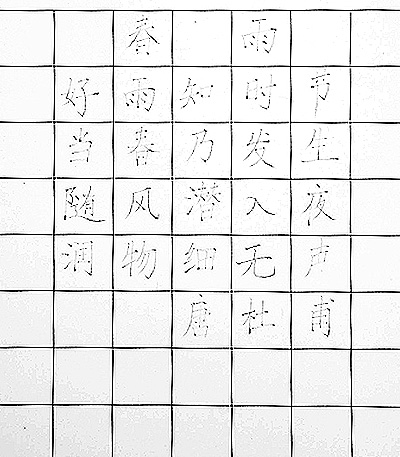 春雨
好雨知时节
当春乃发生
随风潜入夜
润物细无声
唐杜甫